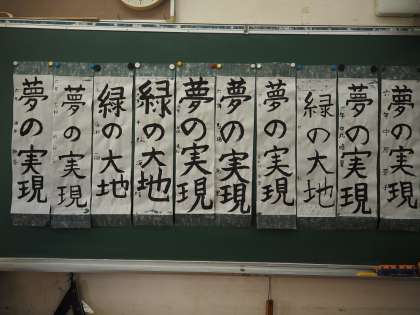 夢の実現
夢の実現
緑の大地
緑の大地
夢の実現
夢の実現
夢の実現
緑の大地
夢の実現
夢の実現